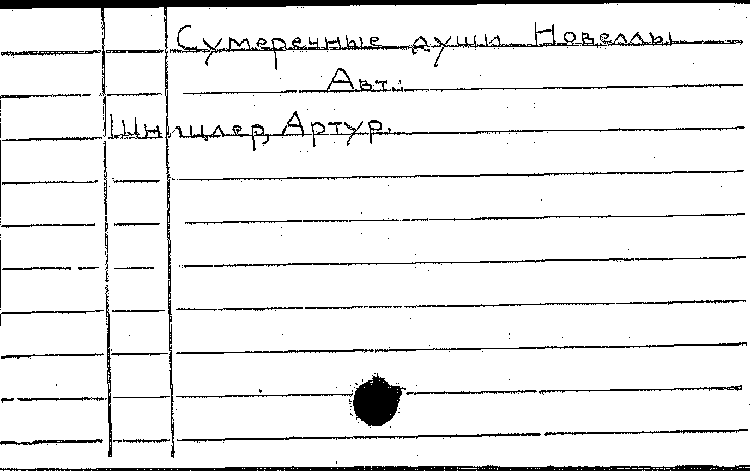 Сумеречные души Новеллы
Авт.:
Шницлер, Артур.